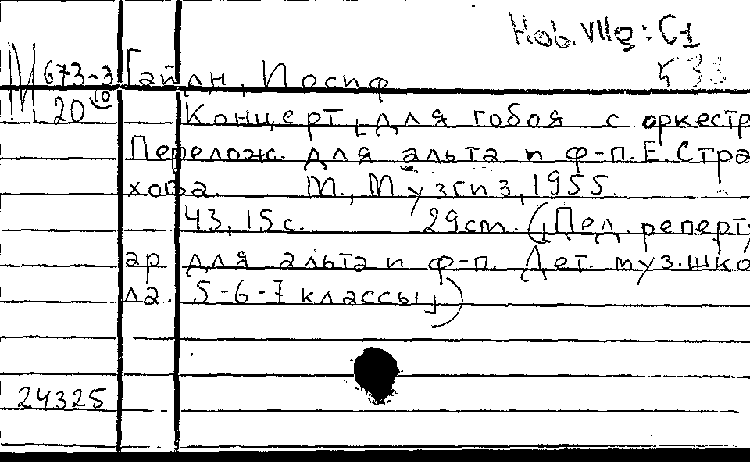 Hob. VIIg: C1
М 673-3 Гайдн, Иосиф 533
20
Концерт [для гобоя с оркестр
Перелож. для альта и ф-п. Е. Стра
хова. М., Музгиз, 1955.
43, 15 с. 29 cm. ([Пед. реперту
ар для альта и ф-п. Дет. муз. шко
ла. 5-6-7 классы])
24325